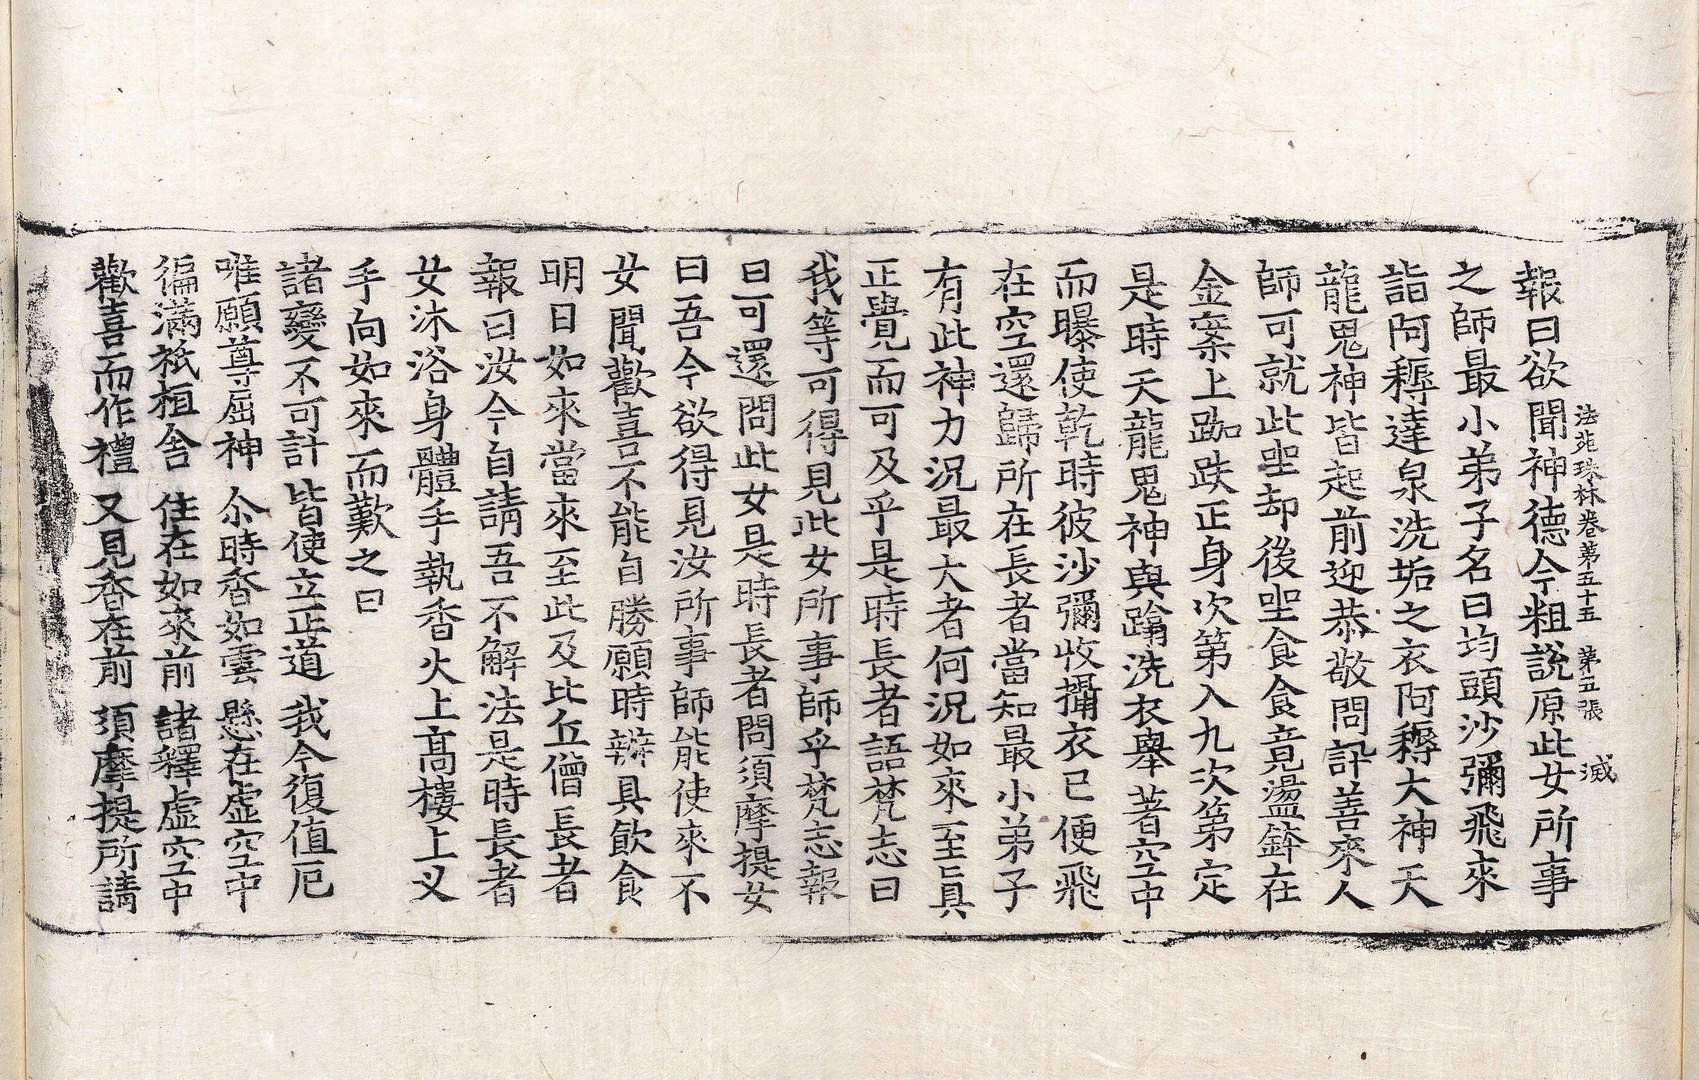 法苑珠林卷第五十五 第五張 㓕
報曰欲聞神德今粗說原此女所事
之師最小弟子名曰均頭沙彌飛來
詣阿耨達泉洗垢之衣阿耨大神天
龍鬼神皆起前迎恭敬問訊善來人
師可就此坐却後坐食食竟盪鉢在
金案上跏趺正身次第入九次第定
是時天龍鬼神與蹹洗衣舉著空中
而曝使乾時彼沙彌收攝衣已便飛
在空還歸所在長者當知最小弟子
有此神力況最大者何況如來至真
正覺而可及乎是時長者語梵志曰
我等可得見此女所事師乎梵志報
曰可還問此女是時長者問須摩提女
曰吾今欲得見汝所事師能使來不
女聞歡喜不能自勝願時辦具飲食
明日如來當來至此及比丘僧長者
報曰汝今自請吾不解法是時長者
女沐浴身體手執香火上高樓上叉
手向如來而歎之曰
諸變不可計 皆使立正道 我今復值厄
唯願尊屈神 尒時香如雲 懸在虛空中
徧滿祇桓舍 住在如來前 諸釋虛空中
歡喜而作禮 又見香在前 須摩提所請